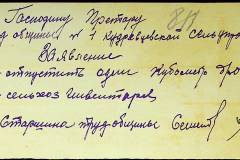 Господину Претору
общины № 1 Кудрявцевской
Заявление
отпустить один кубометр дров
сельхоз инвентаря
Старшина труд общины